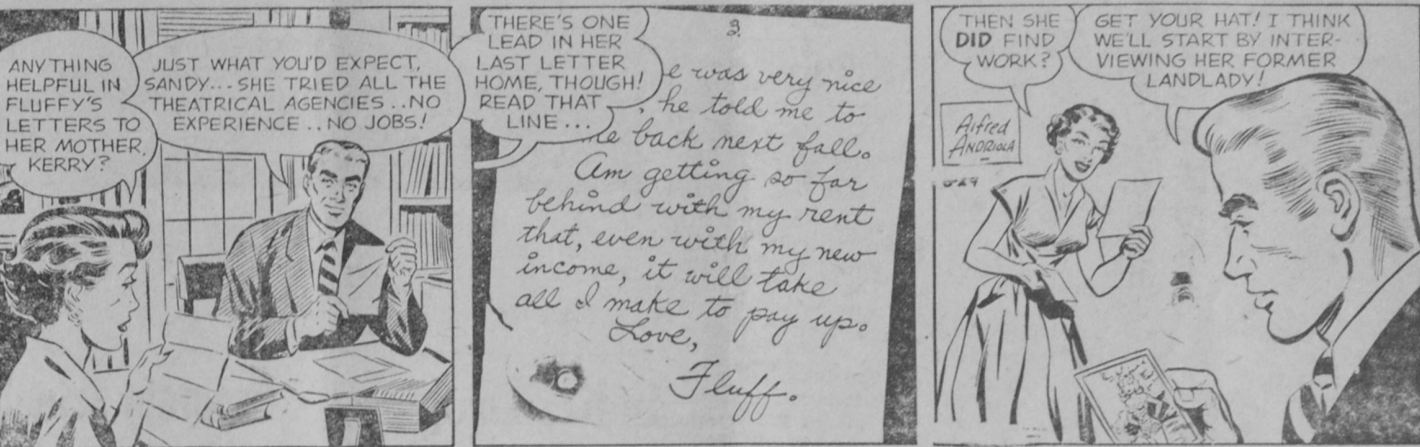 ANYTHING
HELPFUL IN
FLUFFY'S
LETTERS TO
HER MOTHER,
KERRY?
JUST WHAT YOU'D EXPECT,
SANDY... SHE TRIED ALL THE
THEATRICAL AGENCIES.. NO
EXPERIENCE.. NO JOBS!
THERE'S ONE
LEAD IN HER
LAST LETTER
HOME, THOUGH!
READ THAT
LINE...
e was very nice
, he told me to
e back next fall.
Am getting so far
behind with my rent
that, even with my new
income, it will take
all I make to pay up.
Love,
Fluff.
THEN SHE
DID FIND
WORK?
GET YOUR HAT! I THINK
WE'LL START BY INTER-
VIEWING HER FORMER
LANDLADY!
Alfred
ANDRIOLA